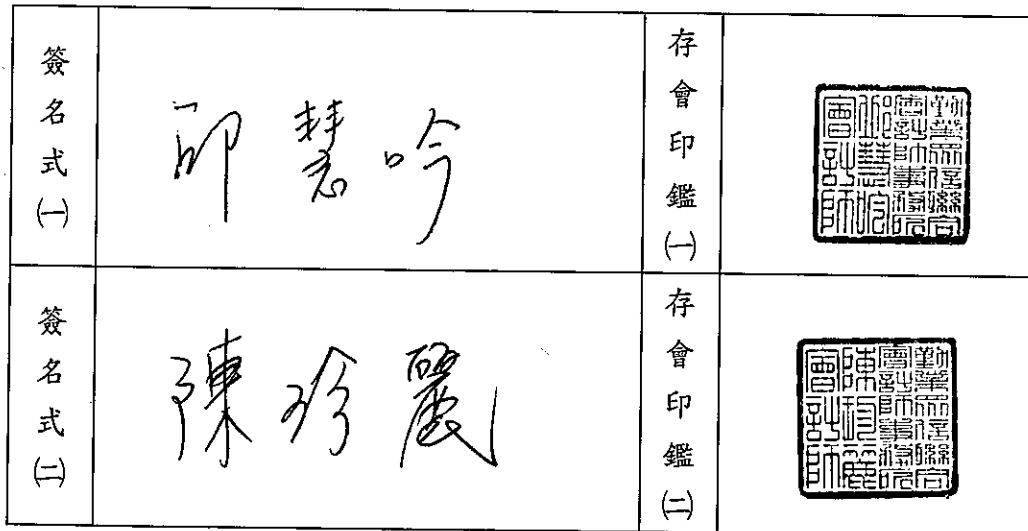 簽名式㈠
邱慧吟
存會印鑑㈠
勤業眾信聯合
會計師事務所
邱慧吟
會計師
簽名式㈡
陳珍麗
存會印鑑㈡
勤業眾信聯合
會計師事務所
陳珍麗
會計師